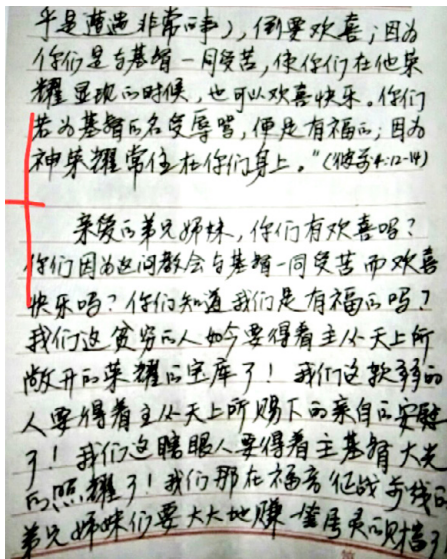 乎是遭遇非常的事），倒要欢喜；因为
你们是与基督一同受苦，使你们在他荣
耀显现的时候，也可以欢喜快乐。你们
若为基督的名受辱骂，便是有福的；因为
神荣耀常住在你们身上。”（彼前4:12-14）
亲爱的弟兄姊妹，你们有欢喜吗？
你们因为这间教会与基督一同受苦而欢喜
快乐吗？你们知道我们是有福的吗？
我们这贫穷的人如今要得着主从天上所
敞开的荣耀的宝库了！我们这软弱的
人要得着主从天上所赐下的亲自的安慰
了！我们这瞎眼人要得着主基督大光
的照耀了！我们那在福音征战前线的
弟兄姊妹们要大大地赚得灵的财